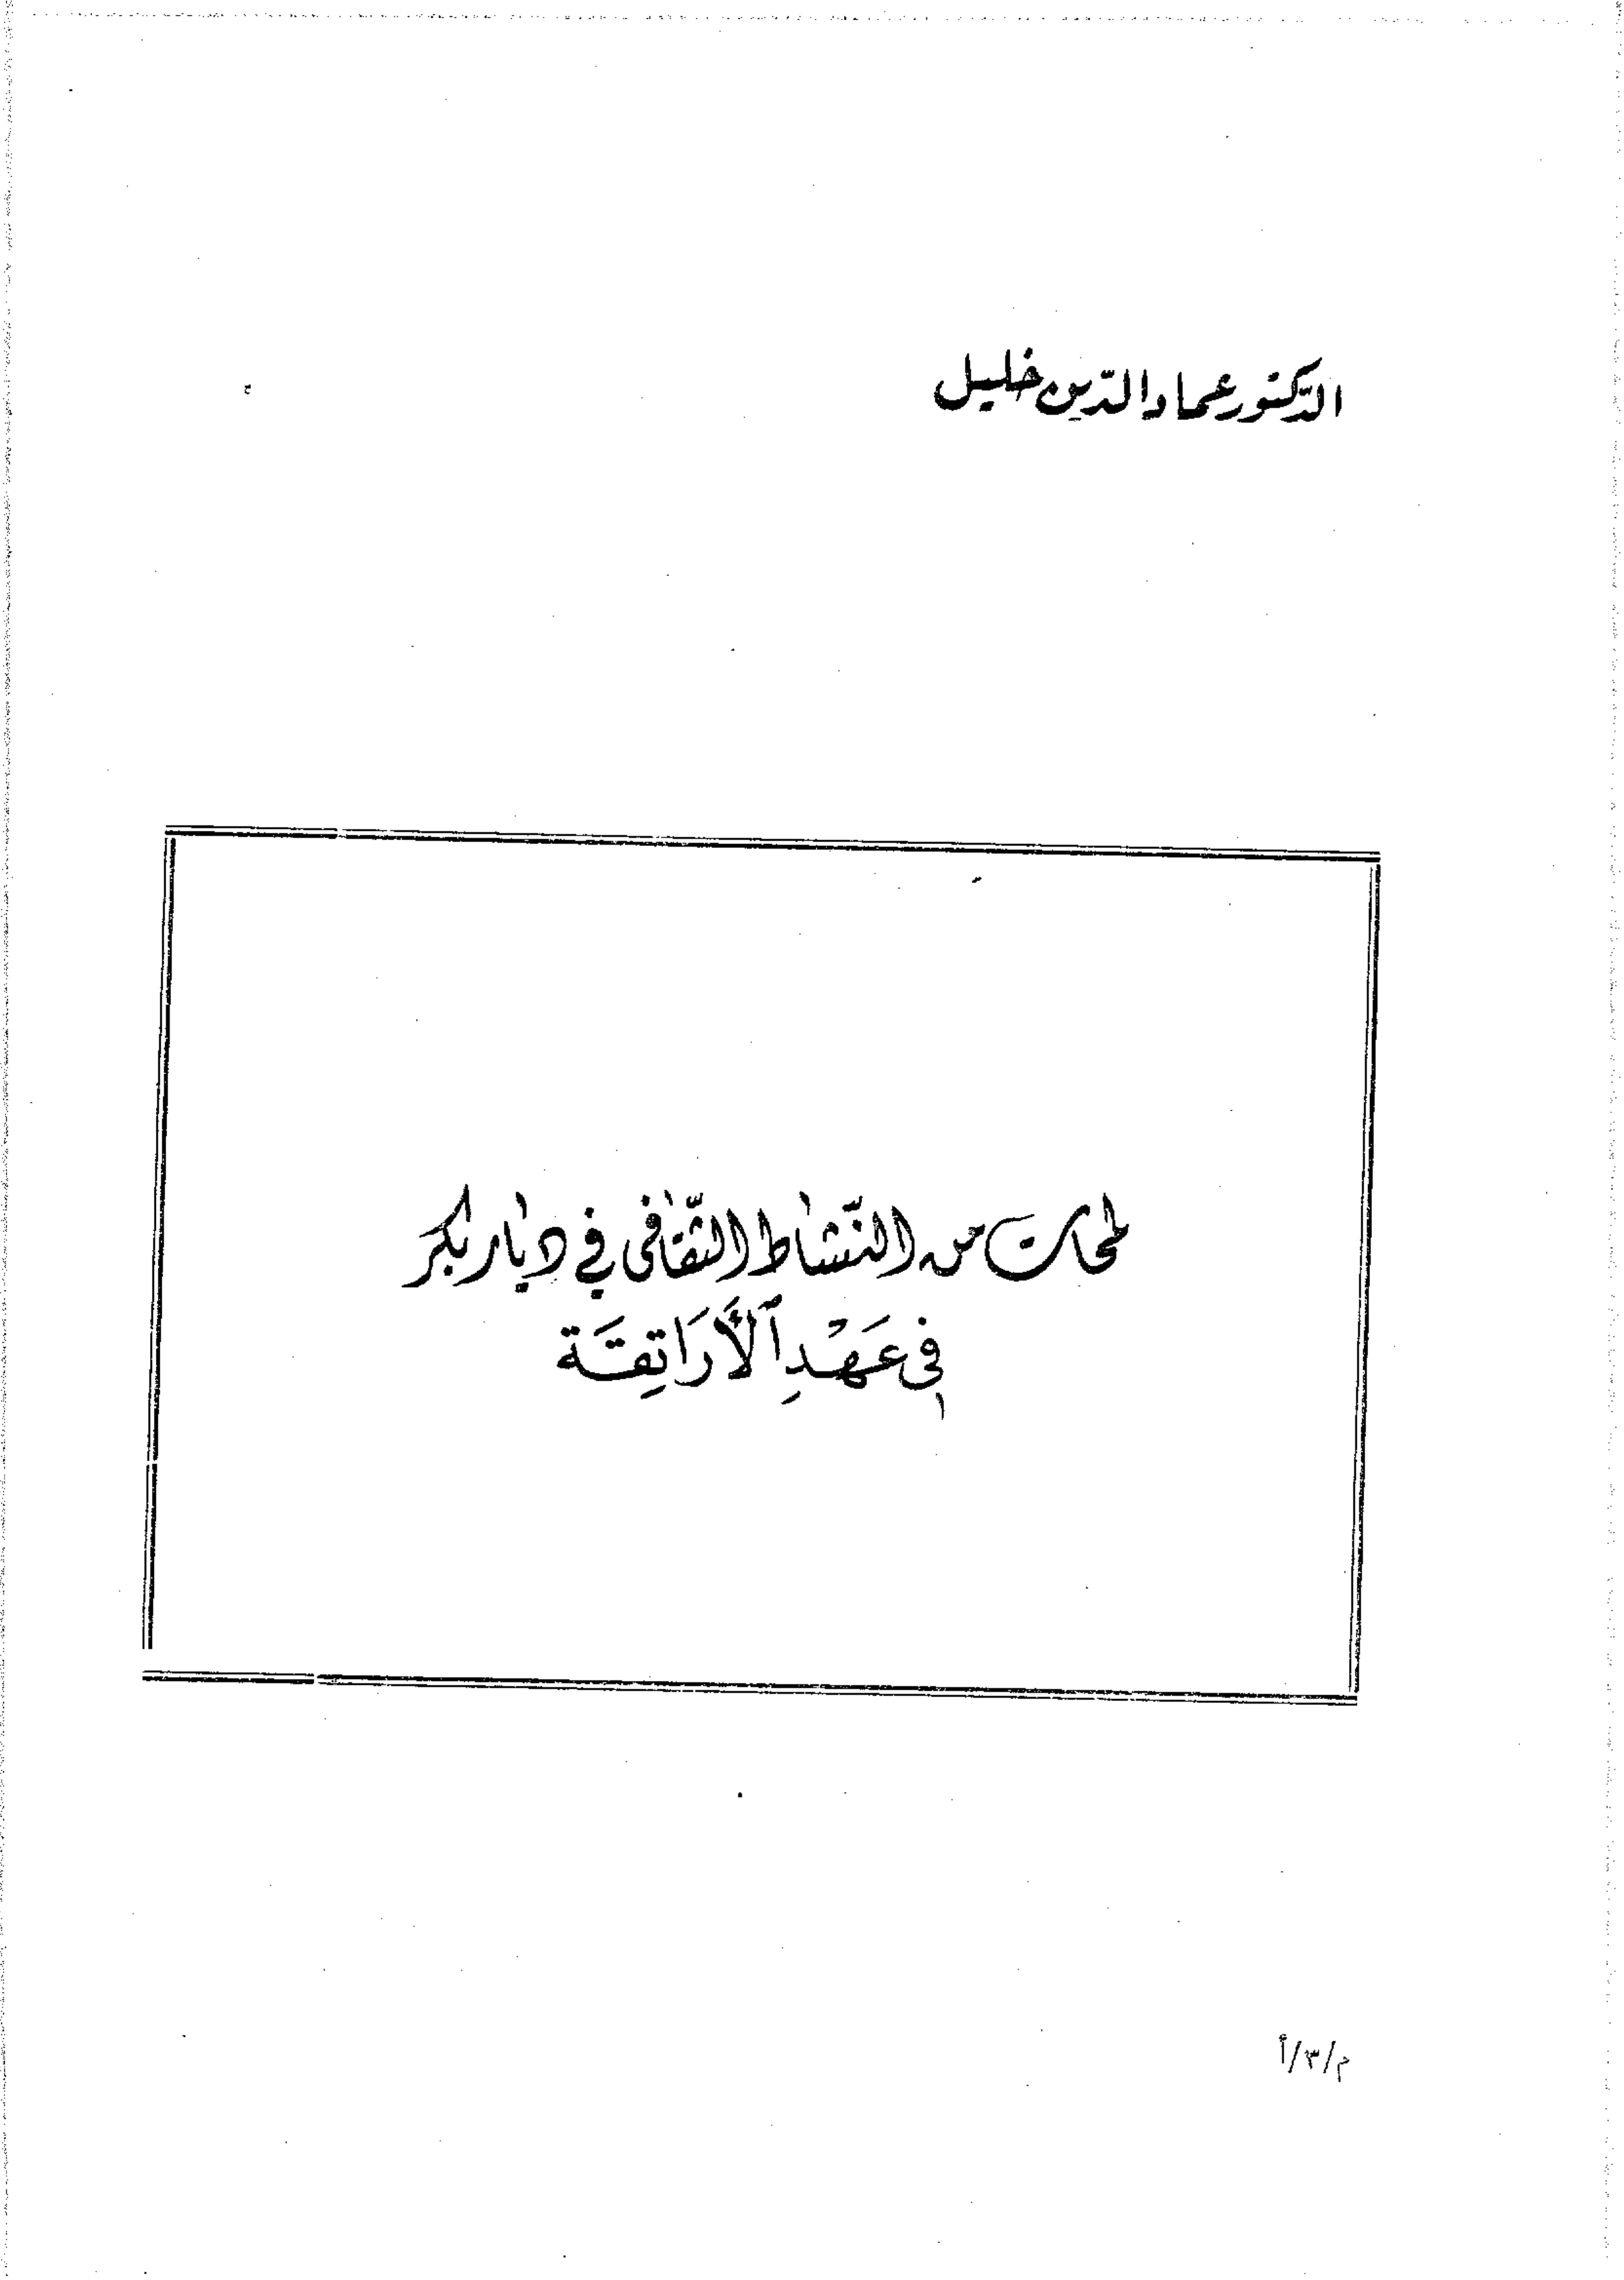 الدّكتور عماد الدّين خليل
لمحات من النّشاط الثّقافى في ديار بكر
فى عَهْدِ ٱلأَرَاتِقَة
م/٣/أ